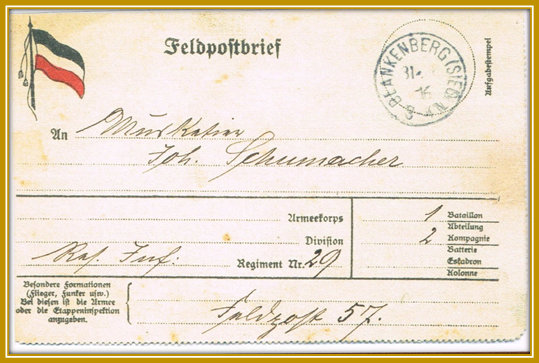 Feldpostbrief
BLANKENBERG (SIEG)
Aufgabestempel
An Musketier
Joh. Schumacher
Armeekorps
Division
Res. Inf: Regiment Nr. 29
1 Bataillon
Abteilung
2 Kompagnie
Batterie
Eskadron
Kolonne
Besondere Formationen
(Flieger, Funker usw.)
Bei diesen ist die Armee
oder die Etappeninspektion
anzugeben.
Feldpost 57.